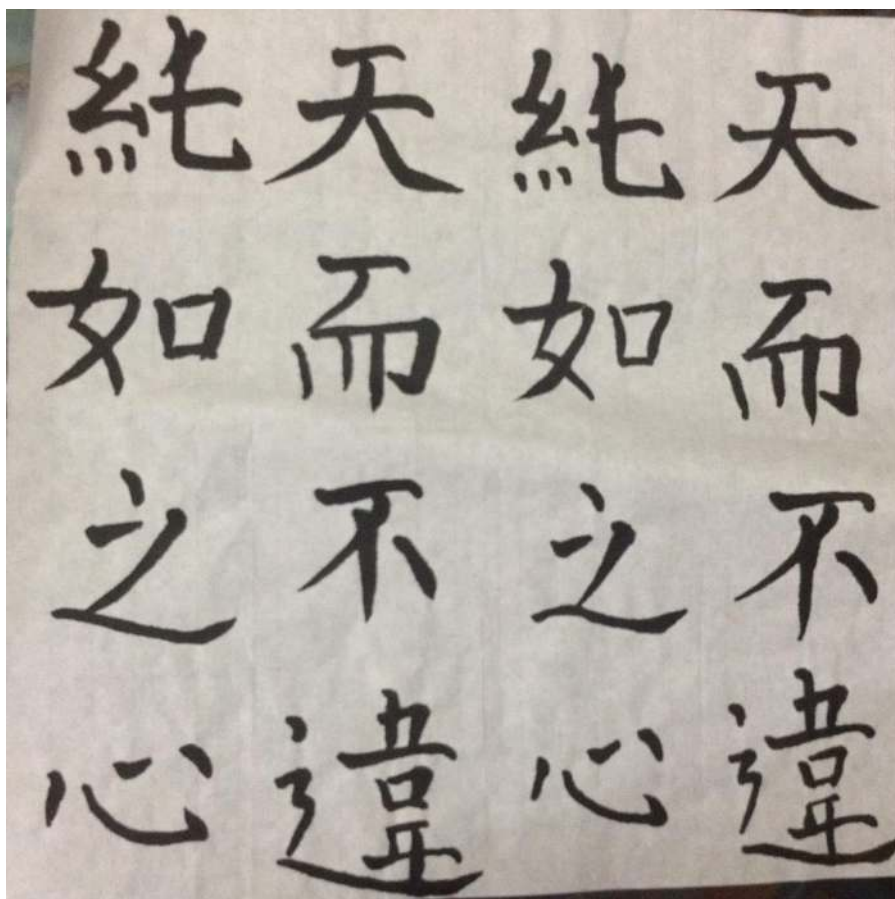 天而不違
純如之心
天而不違
純如之心